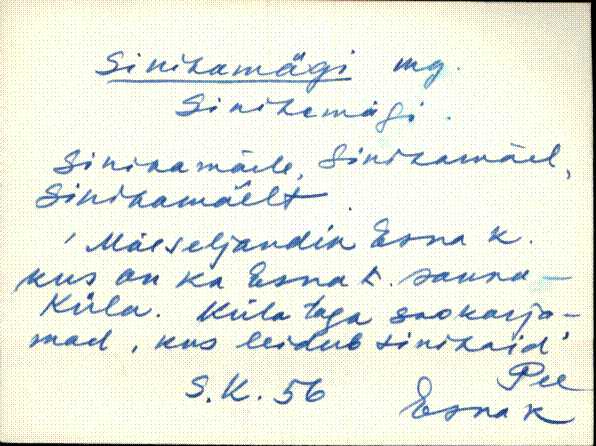 Sinikamägi mg.
Sinikemägi.
Sinikamäele, Sinikamäel,
Sinikamäelt.
'Mäeseljandik Esna k.
kus on ka Esna k. sauna-
küla. Küla taga sookarja-
maad, kus leidub sinikaid'
S.K. 56 Pee
Esna k